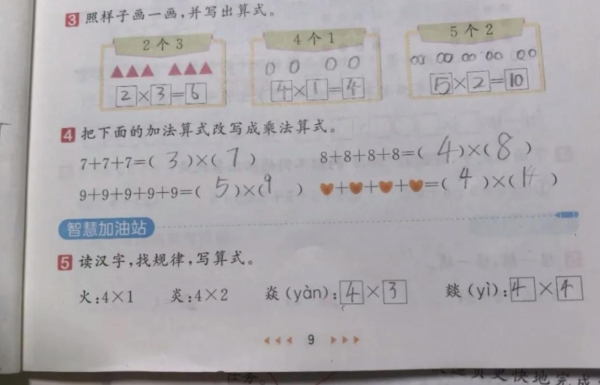 3 照样子画一画,并写出算式。
2个3 4个1 5个2
2×3=6 4×1=4 5×2=10
4 把下面的加法算式改写成乘法算式。
7+7+7=( 3 )×( 7 ) 8+8+8+8=( 4 )×( 8 )
9+9+9+9+9=( 5 )×( 9 ) ❤+❤+❤+❤=( 4 )×( )
智慧加油站
5 读汉字,找规律,写算式。
火:4×1 炎:4×2 焱(yàn):4×3 燚(yì):4×4
9